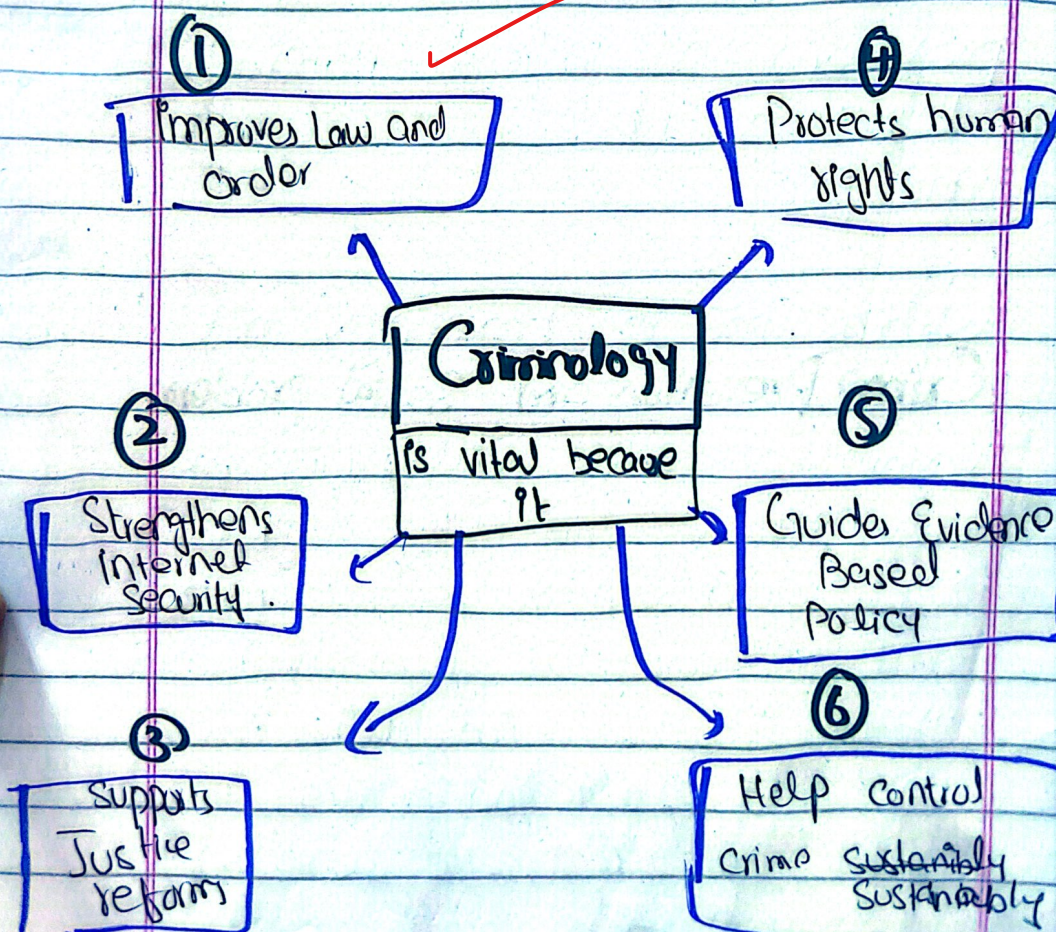 ①
Improves Law and
order
④
Protects human
rights
Criminology
is vital becaue
it
②
Strengthens
internel
security.
⑤
Guides Evidence
Based
Policy
③
Supports
Justice
reforms
⑥
Help control
crime sustenibly
sustanabely